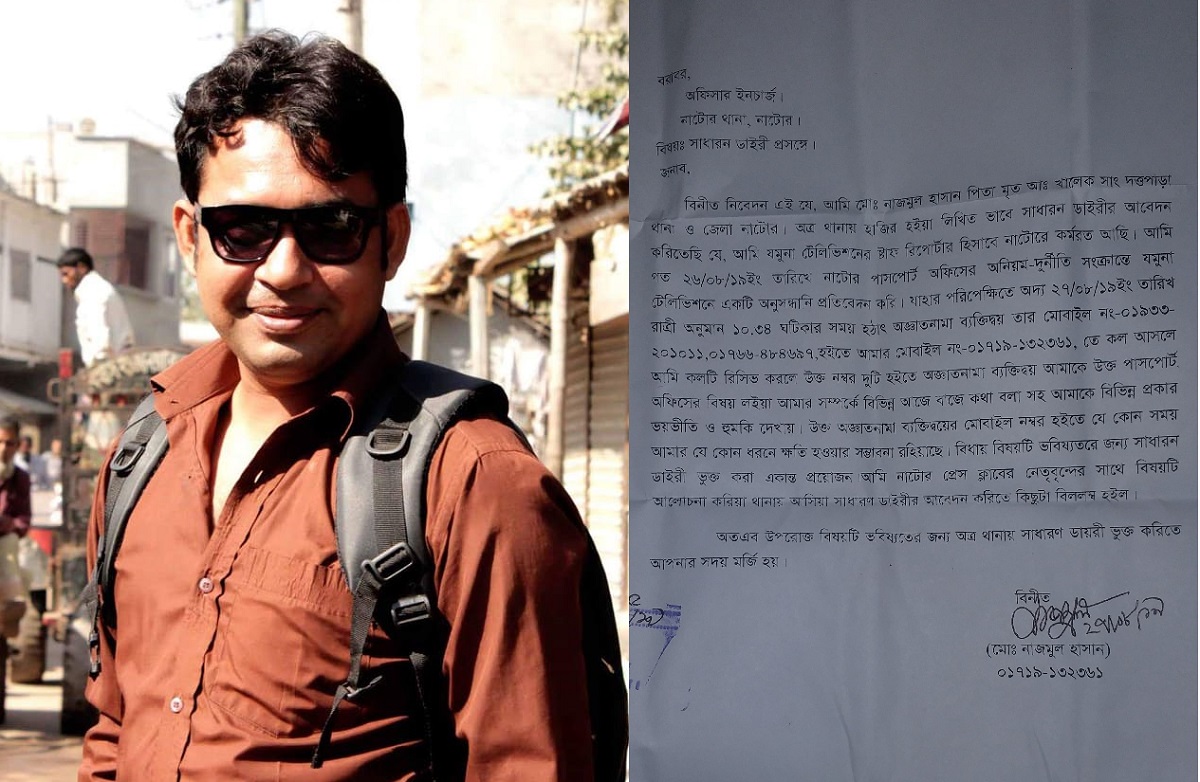 বরাবর,
অফিসার ইনচার্জ।
নাটোর থানা, নাটোর।
বিষয়ঃ সাধারন ডাইরী প্রসঙ্গে।
জনাব,
বিনীত নিবেদন এই যে, আমি মোঃ নাজমুল হাসান পিতা মৃত আঃ খালেক সাং দত্তপাড়া
থানা ও জেলা নাটোর। অত্র থানায় হাজির হইয়া লিখিত ভাবে সাধারন ডাইরীর আবেদন
করিতেছি যে, আমি যমুনা টেলিভিশনের ষ্টাফ রিপোর্টার হিসাবে নাটোরে কর্মরত আছি। আমি
গত ২৬/০৮/১৯ইং তারিখে নাটোর পাসপোর্ট অফিসের অনিয়ম-দুর্নীতি সংক্রান্তে যমুনা
টেলিভিশনে একটি অনুসন্ধানি প্রতিবেদন করি। যাহার পরিপ্রেক্ষিতে অদ্য ২৭/০৮/১৯ইং তারিখ
রাত্রী অনুমান ১০.৩৪ ঘটিকার সময় হঠাৎ অজ্ঞাতনামা ব্যক্তিদ্বয় তার মোবাইল নং-০১৯৩৩-
২০১০১১,০১৭৬৬-৪৮৪৬৯৭,হইতে আমার মোবাইল নং-০১৭১৯-১৩২৩৬১, তে কল আসলে
আমি কলটি রিসিভ করলে উক্ত নম্বর দুটি হইতে অজ্ঞাতনামা ব্যক্তিদ্বয় আমাকে উক্ত পাসপোর্ট
অফিসের বিষয় লইয়া আমার সম্পর্কে বিভিন্ন আজে বাজে কথা বলা সহ আমাকে বিভিন্ন প্রকার
ভয়ভীতি ও হুমকি দেখায়। উক্ত অজ্ঞাতনামা ব্যক্তিদ্বয়ের মোবাইল নম্বর হইতে যে কোন সময়
আমার যে কোন ধরনে ক্ষতি হওয়ার সম্ভাবনা রহিয়াছে। বিধায় বিষয়টি ভবিষ্যতের জন্য সাধারন
ডাইরী ভুক্ত করা একান্ত প্রয়োজন আমি নাটোর প্রেস ক্লাবের নেতৃবৃন্দের সাথে বিষয়টি
আলোচনা করিয়া থানায় আসিয়া সাধারন ডাইরীর আবেদন করিতে কিছুটা বিলম্ব হইল।
অতএব উপরোক্ত বিষয়টি ভবিষ্যতের জন্য অত্র থানায় সাধারণ ডাইরী ভুক্ত করিতে
আপনার সদয় মর্জি হয়।
বিনীত
২৭/০৮/১৯
(মোঃ নাজমুল হাসান)
০১৭১৯-১৩২৩৬১